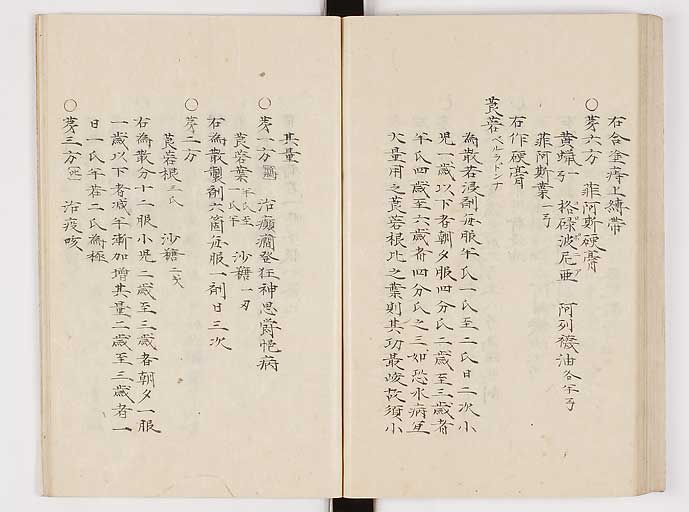 右合塗痔上縛帯
○第六方 菲阿斯硬膏
黄蠟 格碌波尼亜 阿列襪油各半弓
菲阿斯葉一弓
右作硬膏
莨菪ベルラドンナ
為散若浸剤毎服半氏一氏至二氏日二次小
児一歳以下者朝夕服四分氏二歳至三歳者
半氏四歳至六歳者四分氏之三如恐水病宜
大量用之莨菪根比之葉則其功最峻故須小
其量
○第一方 治癲癇發狂神思鬱悒病
莨菪葉一氏半 沙糖一刃
右為散製剤六箇毎服一剤日三次
○第二方
莨菪根三氏 沙糖二戈
右為散分十二服小児二歳至三歳者朝夕一服
一歳以下者減半漸加増其量二歳至三歳者一
日一氏半若二氏為極
○第三方 治疫咳